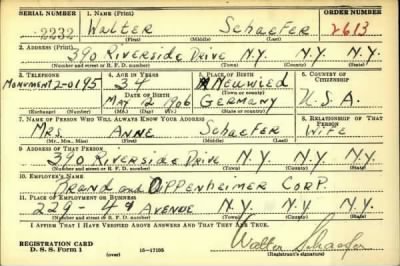 SERIAL NUMBER 1. NAME (Print) ORDER NUMBER
2232 Walter Schaefer 2613
(First) (Middle) (Last)
2. ADDRESS (Print)
390 Riverside Drive N.Y. N.Y. N.Y.
(Number and street or R. F. D. number) (Town) (County) (State)
3. TELEPHONE 4. AGE IN YEARS 5. PLACE OF BIRTH 6. COUNTRY OF CITIZENSHIP
Monument 2-0195 34 Neuwied
DATE OF BIRTH (Town or county)
May 12 1906 Germany U.S.A.
(Exchange) (Number) (Mo.) (Day) (Yr.) (State or country)
7. NAME OF PERSON WHO WILL ALWAYS KNOW YOUR ADDRESS 8. RELATIONSHIP OF THAT PERSON
Mrs. Anne Schaefer Wife
(Mr., Mrs., Miss) (First) (Middle) (Last)
9. ADDRESS OF THAT PERSON
390 Riverside Drive N.Y. N.Y. N.Y.
(Number and street or R. F. D. number) (Town) (County) (State)
10. EMPLOYER'S NAME
Brand and Oppenheimer Corp.
11. PLACE OF EMPLOYMENT OR BUSINESS
229 - 4th Avenue N.Y. N.Y. N.Y.
(Number and street or R. F. D. number) (Town) (County) (State)
I AFFIRM THAT I HAVE VERIFIED ABOVE ANSWERS AND THAT THEY ARE TRUE.
REGISTRATION CARD
D. S. S. Form 1 16-17105 Walter Schaefer
(Registrant's signature)